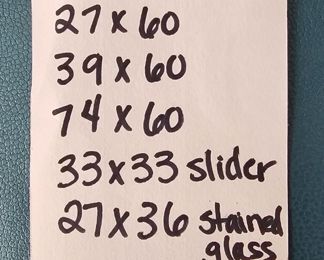 27 x 60
39 x 60
74 x 60
33x33 slider
27x36 stained
glass